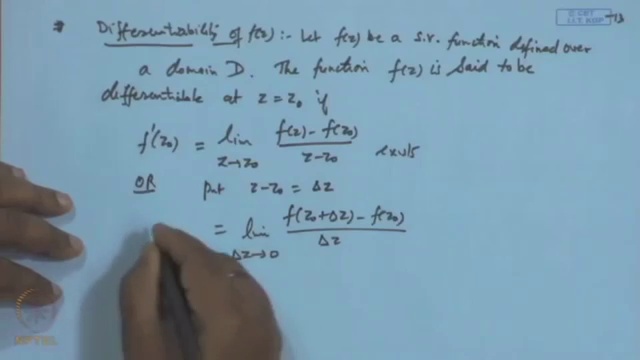 © CET
I.I.T. KGP
* Differentiability of f(z) :- Let f(z) be a s.v. function defined over
a domain D. The function f(z) is said to be
differentiable at z = z₀ if
f'(z₀) = lim z→z₀ (f(z) - f(z₀))/(z - z₀) exists
OR put z - z₀ = Δz
= lim Δz→0 (f(z₀+Δz) - f(z₀))/Δz
NPTEL